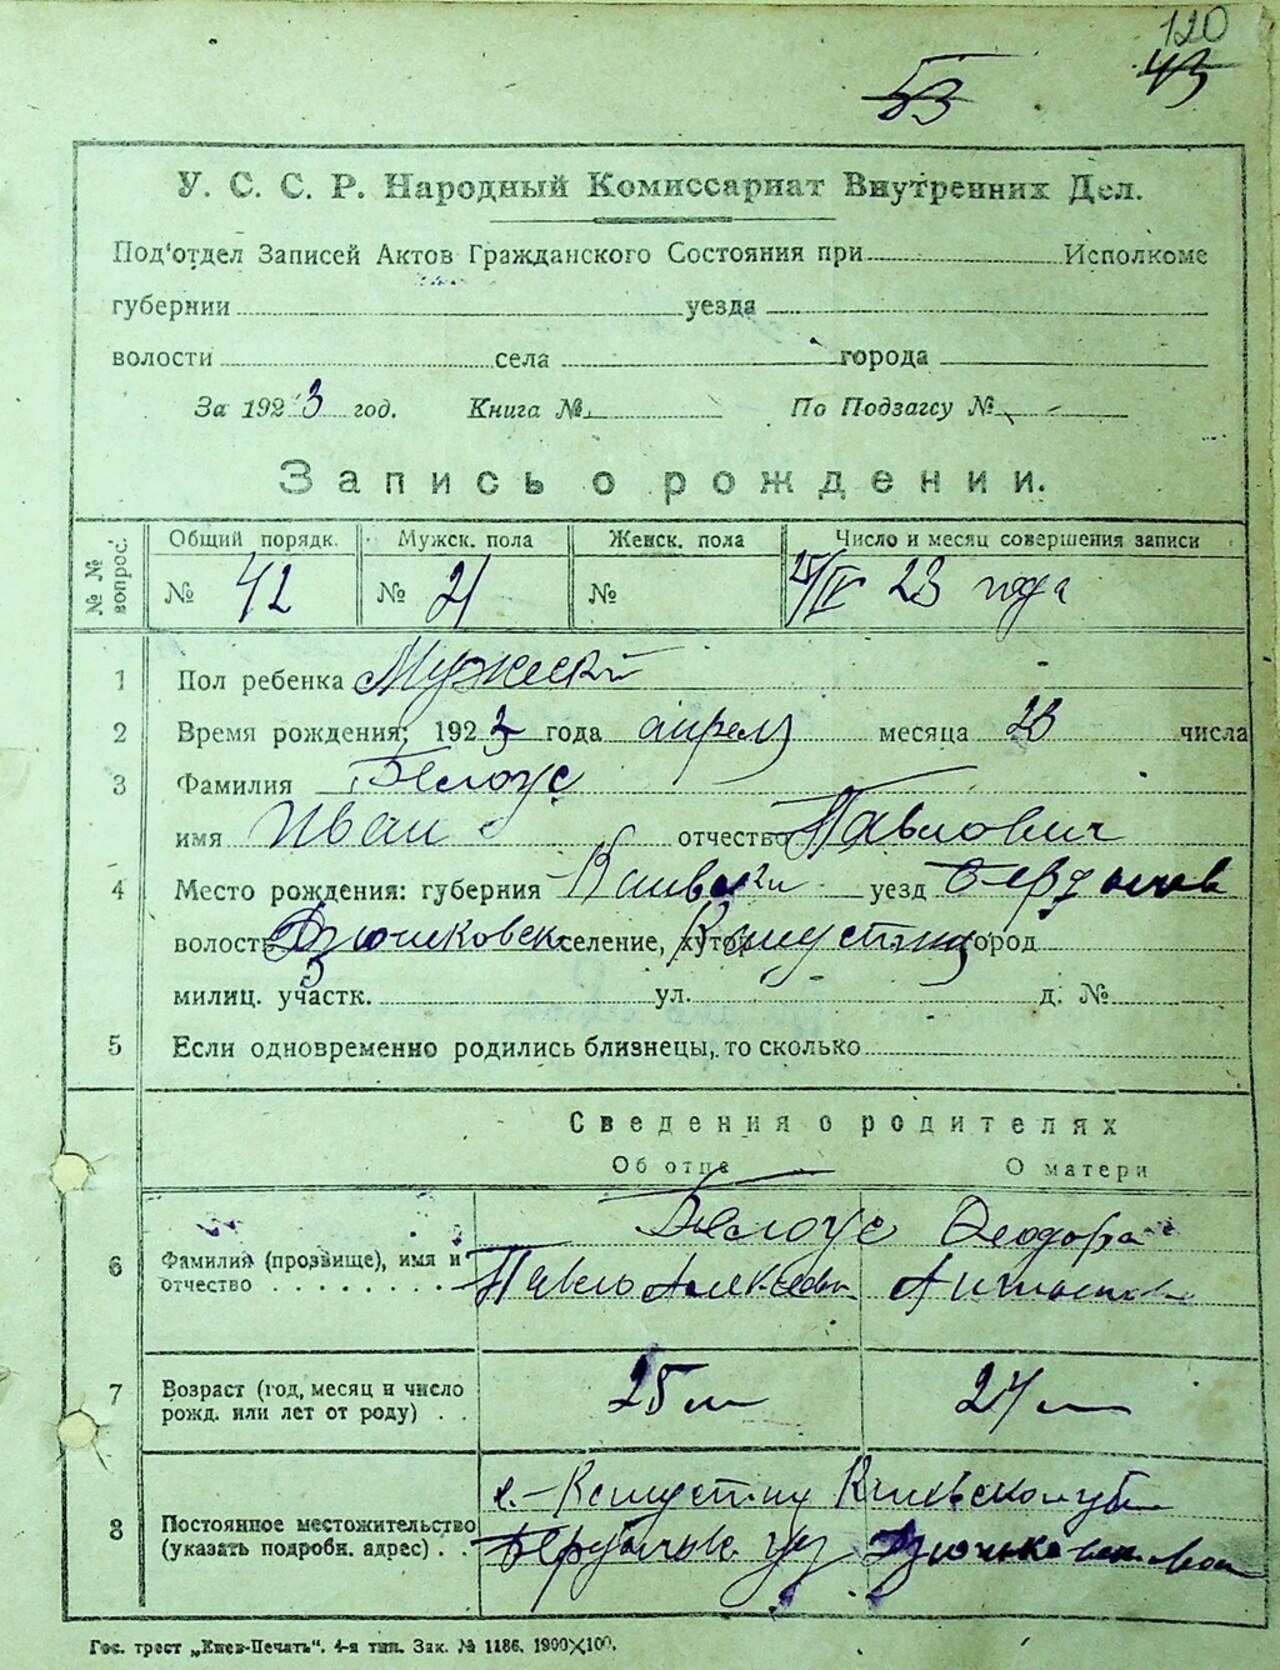 120
43
53
У. С. С. Р. Народный Комиссариат Внутренних Дел.
Под'отдел Записей Актов Гражданского Состояния при Исполкоме
губернии уезда
волости села города
За 1923 год. Книга № По Подзагсу №
Запись о рождении.
№ № вопрос. Общий порядк. Мужск. пола Женск. пола Число и месяц совершения записи
№ 42 № 21 № 25/IV 23 года
1 Пол ребенка Мужеский
2 Время рождения; 1923 года апреля месяца 23 числа
3 Фамилия Белоус
имя Иван отчество Павлович
4 Место рождения: губерния Киевская уезд Бердичев
волость Дзюньковск селение, хутор город
милиц. участк. ул. д. №
5 Если одновременно родились близнецы, то сколько
Сведения о родителях
Об отце О матери
Белоус Феодора
6 Фамилия (прозвище), имя и отчество Павло Алексеев
7 Возраст (год, месяц и число рожд. или лет от роду) 25 л 24 л
8 Постоянное местожительство (указать подробн. адрес)
Гос. трест „Киев-Печать". 4-я тип. Зак. № 1186. 1900×100.